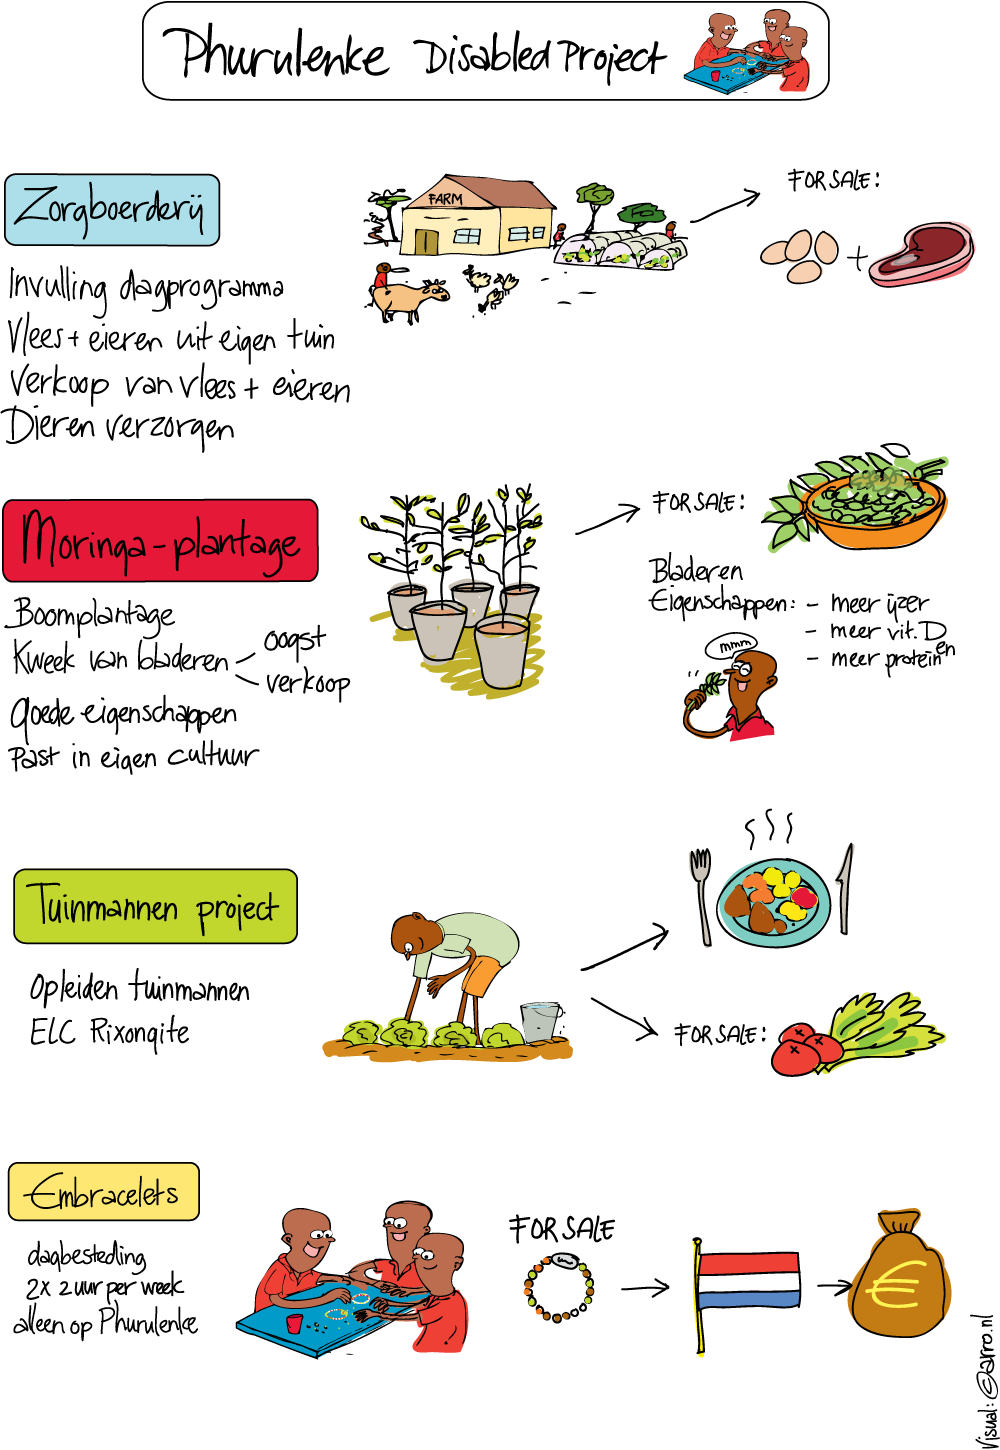 Phurulenke Disabled Project
Zorgboerderij
Invulling dagprogramma
Vlees + eieren uit eigen tuin
Verkoop van vlees + eieren
Dieren verzorgen
FARM
FOR SALE:
+
Moringa-plantage
Boomplantage
Kweek van bladeren
oogst
verkoop
goede eigenschappen
Past in eigen cultuur
FOR SALE:
Bladeren
Eigenschappen: - meer ijzer
- meer vit. D
- meer proteinen
mmm
Tuinmannen project
Opleiden tuinmannen
ELC Rixongite
FOR SALE:
Embracelets
dagbesteding
2x 2 uur per week
alleen op Phurulenke
FOR SALE
€
Visual: ©arro.nl